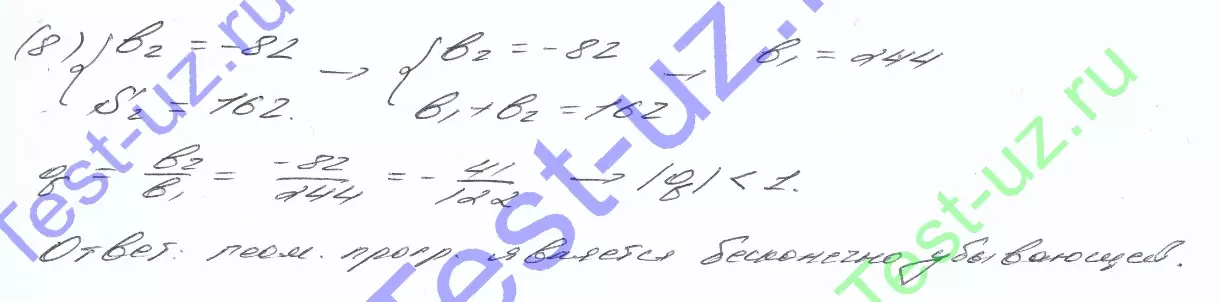 (8) { b₂ = -82 → { b₂ = -82 → b₁ = 244
S₂ = 162. b₁ + b₂ = 162
q = b₂/b₁ = -82/244 = -41/122 → |q| < 1.
Ответ: геом. прогр. является бесконечно убывающей.
Test-uz.ru
Test-uz.ru
Test-uz.ru